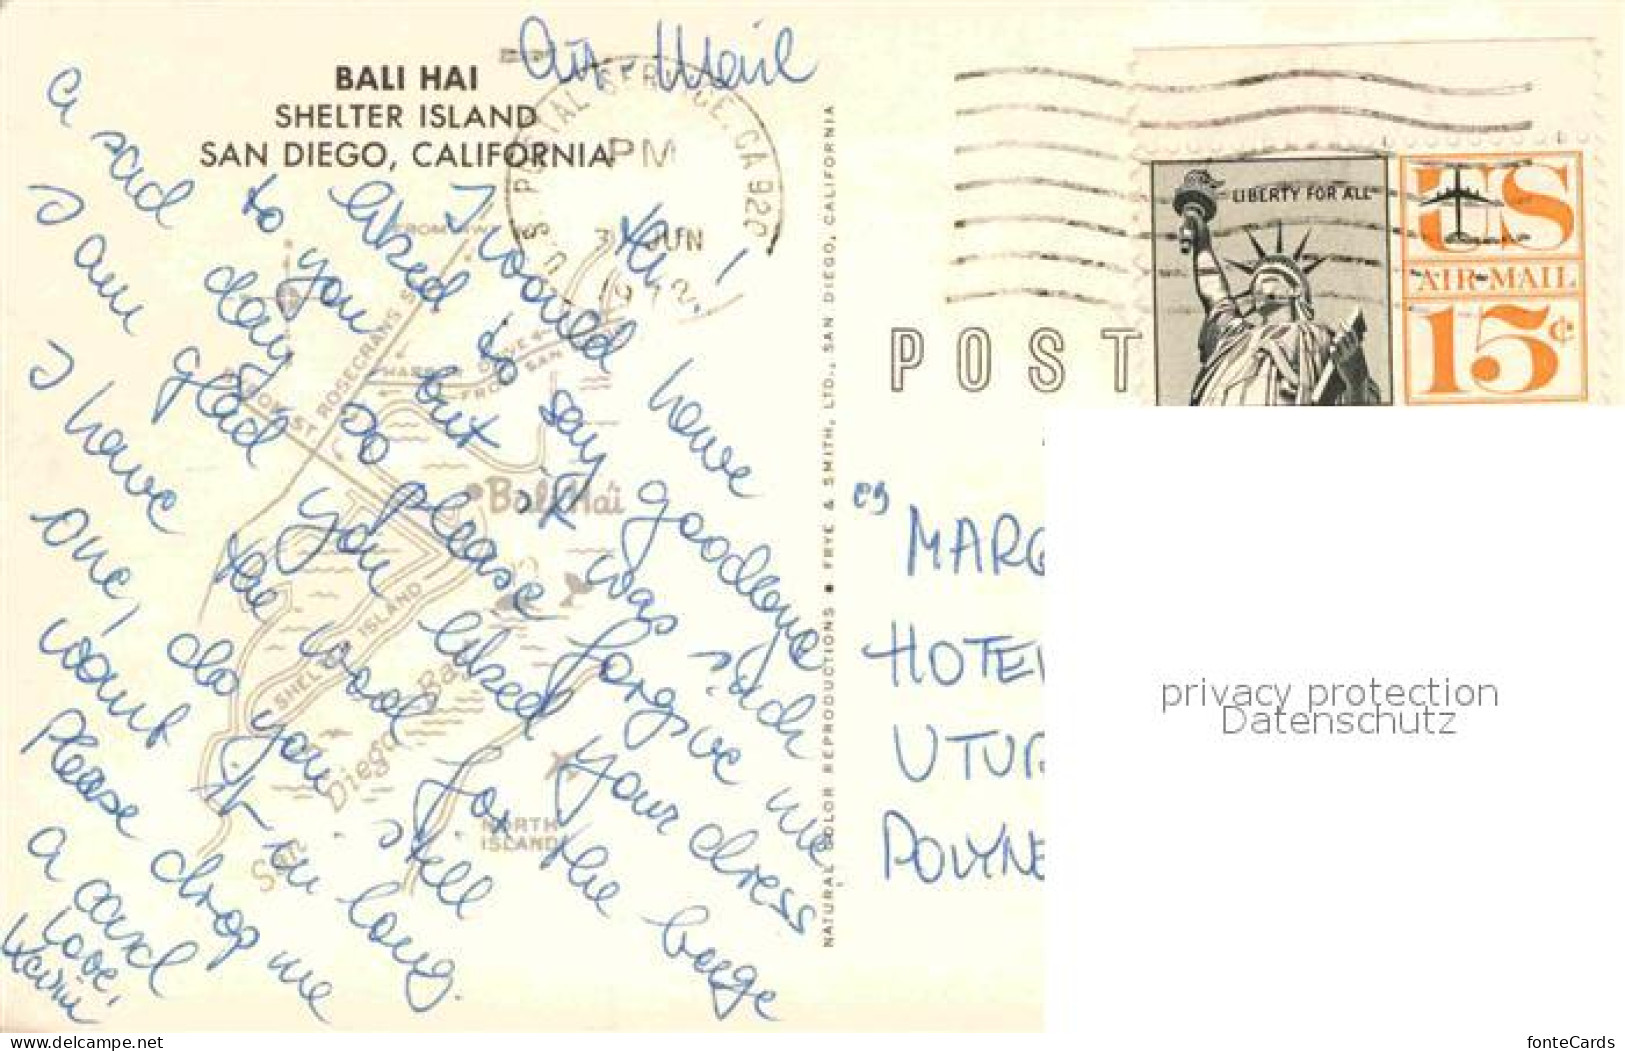 Air-Mail
BALI HAI
SHELTER ISLAND
SAN DIEGO, CALIFORNIA
U.S. POSTAL SERVICE, CA 920
PM
3 JUN
19
LIBERTY FOR ALL
US
AIR MAIL
15¢
POST
Hi!
I would have goodbye
liked to say
to you but it was such
a sad day so please forgive me
I am glad you liked your dress
I have the wool for the beige
one, do you still
want it in long.
Please drop me
a card
Love,
FROM
ROSECRANS ST
HARBOR DRIVE
FROM SAN
Bali Hai
SHELTER ISLAND
San Diego Bay
NORTH
ISLAND
NATURAL COLOR REPRODUCTIONS • FRYE & SMITH, LTD., SAN DIEGO, CALIFORNIA
MARG
HOTE
UTUR
POLYNE
privacy protection
Datenschutz
www.delcampe.net
fonteCards